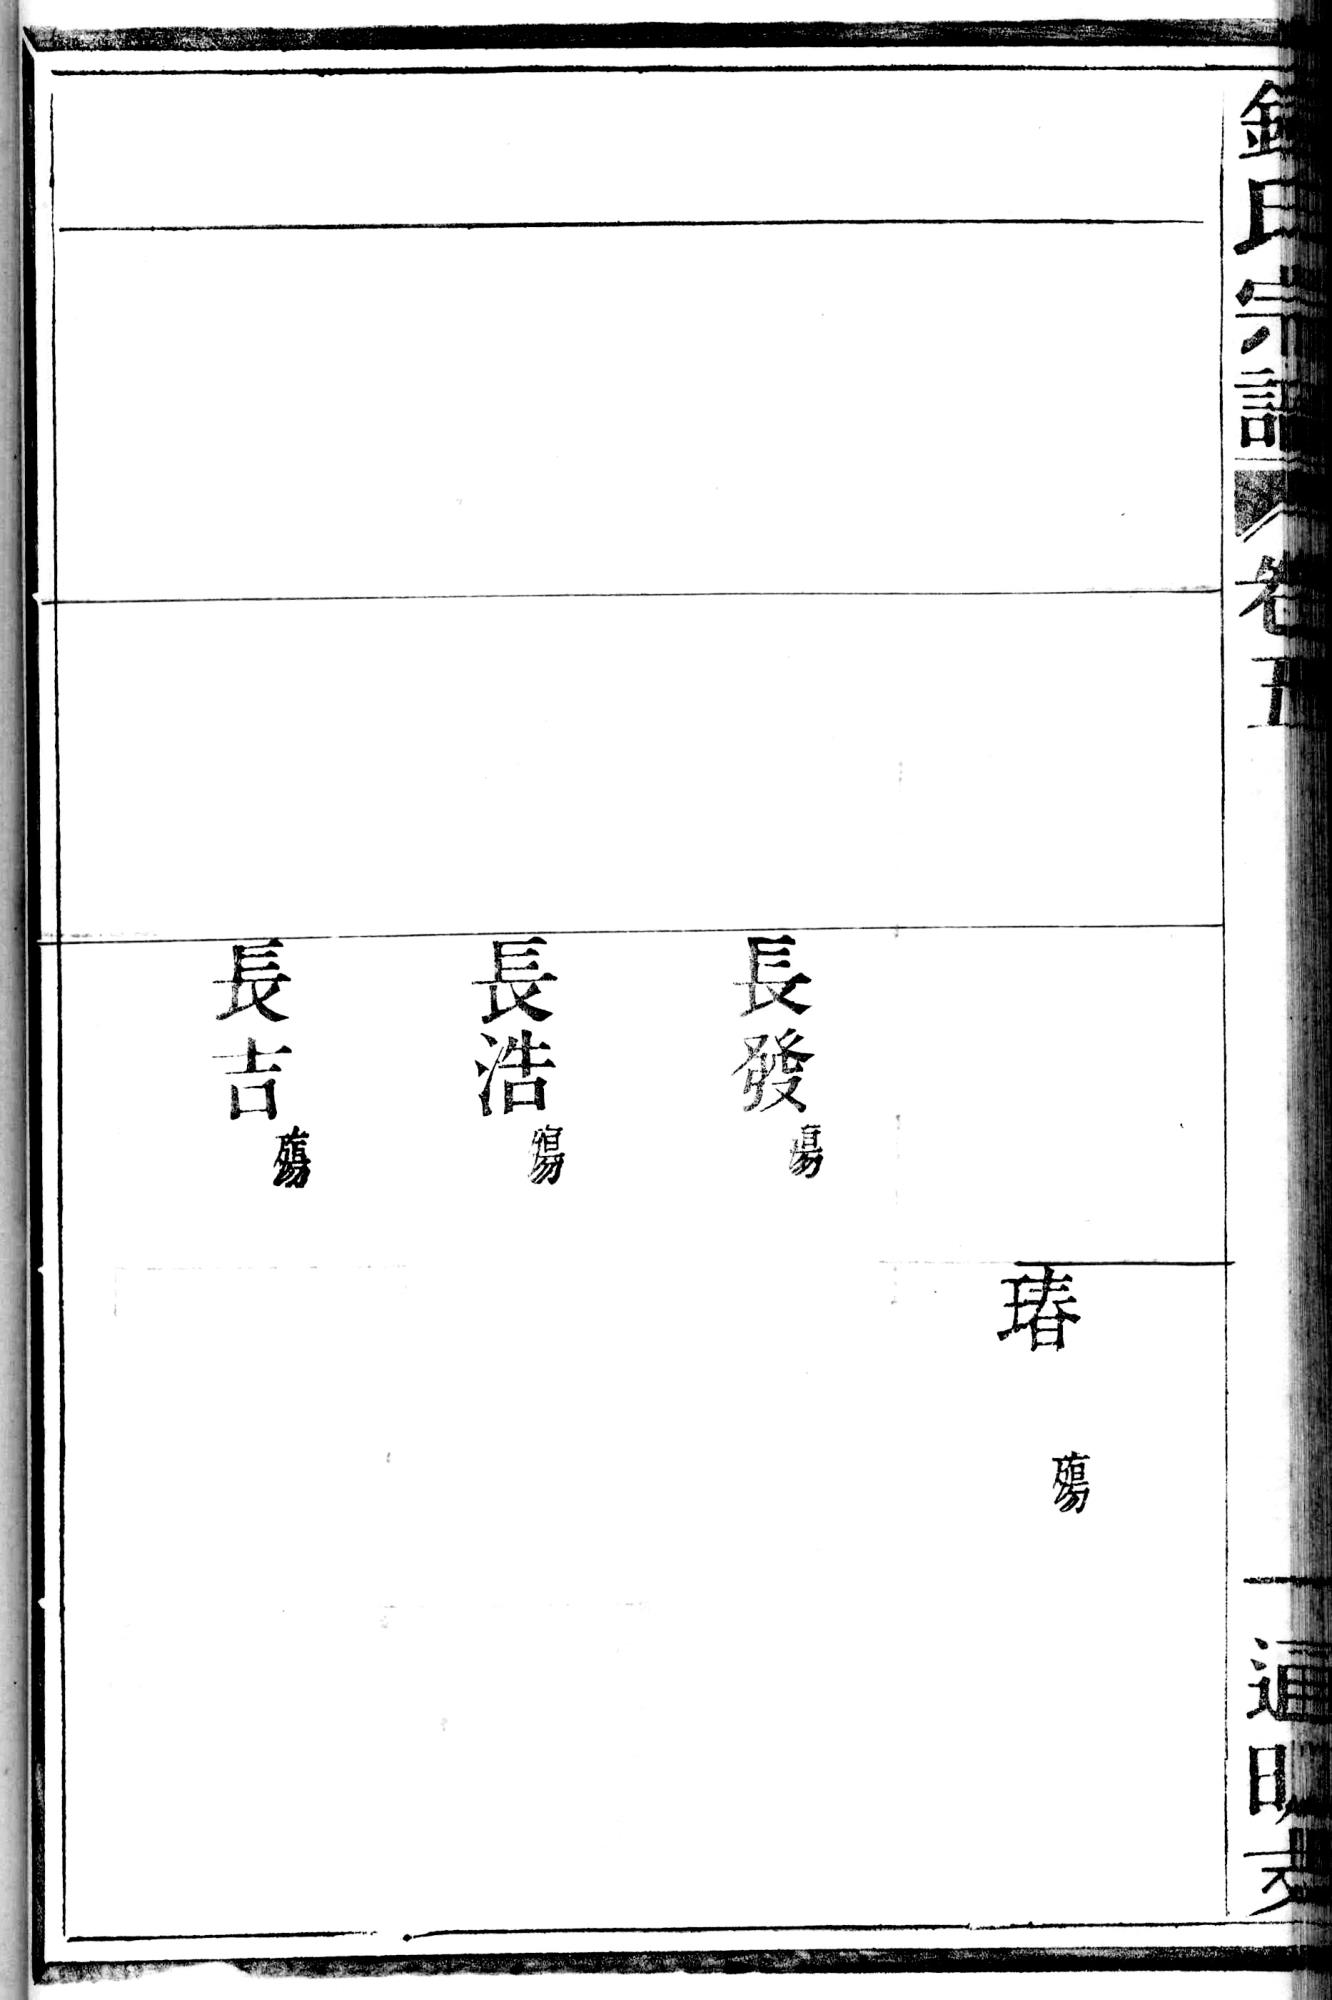 氏宗譜 卷五 一 通明支
瑃 殤
長發 殤
長浩 殤
長吉 殤